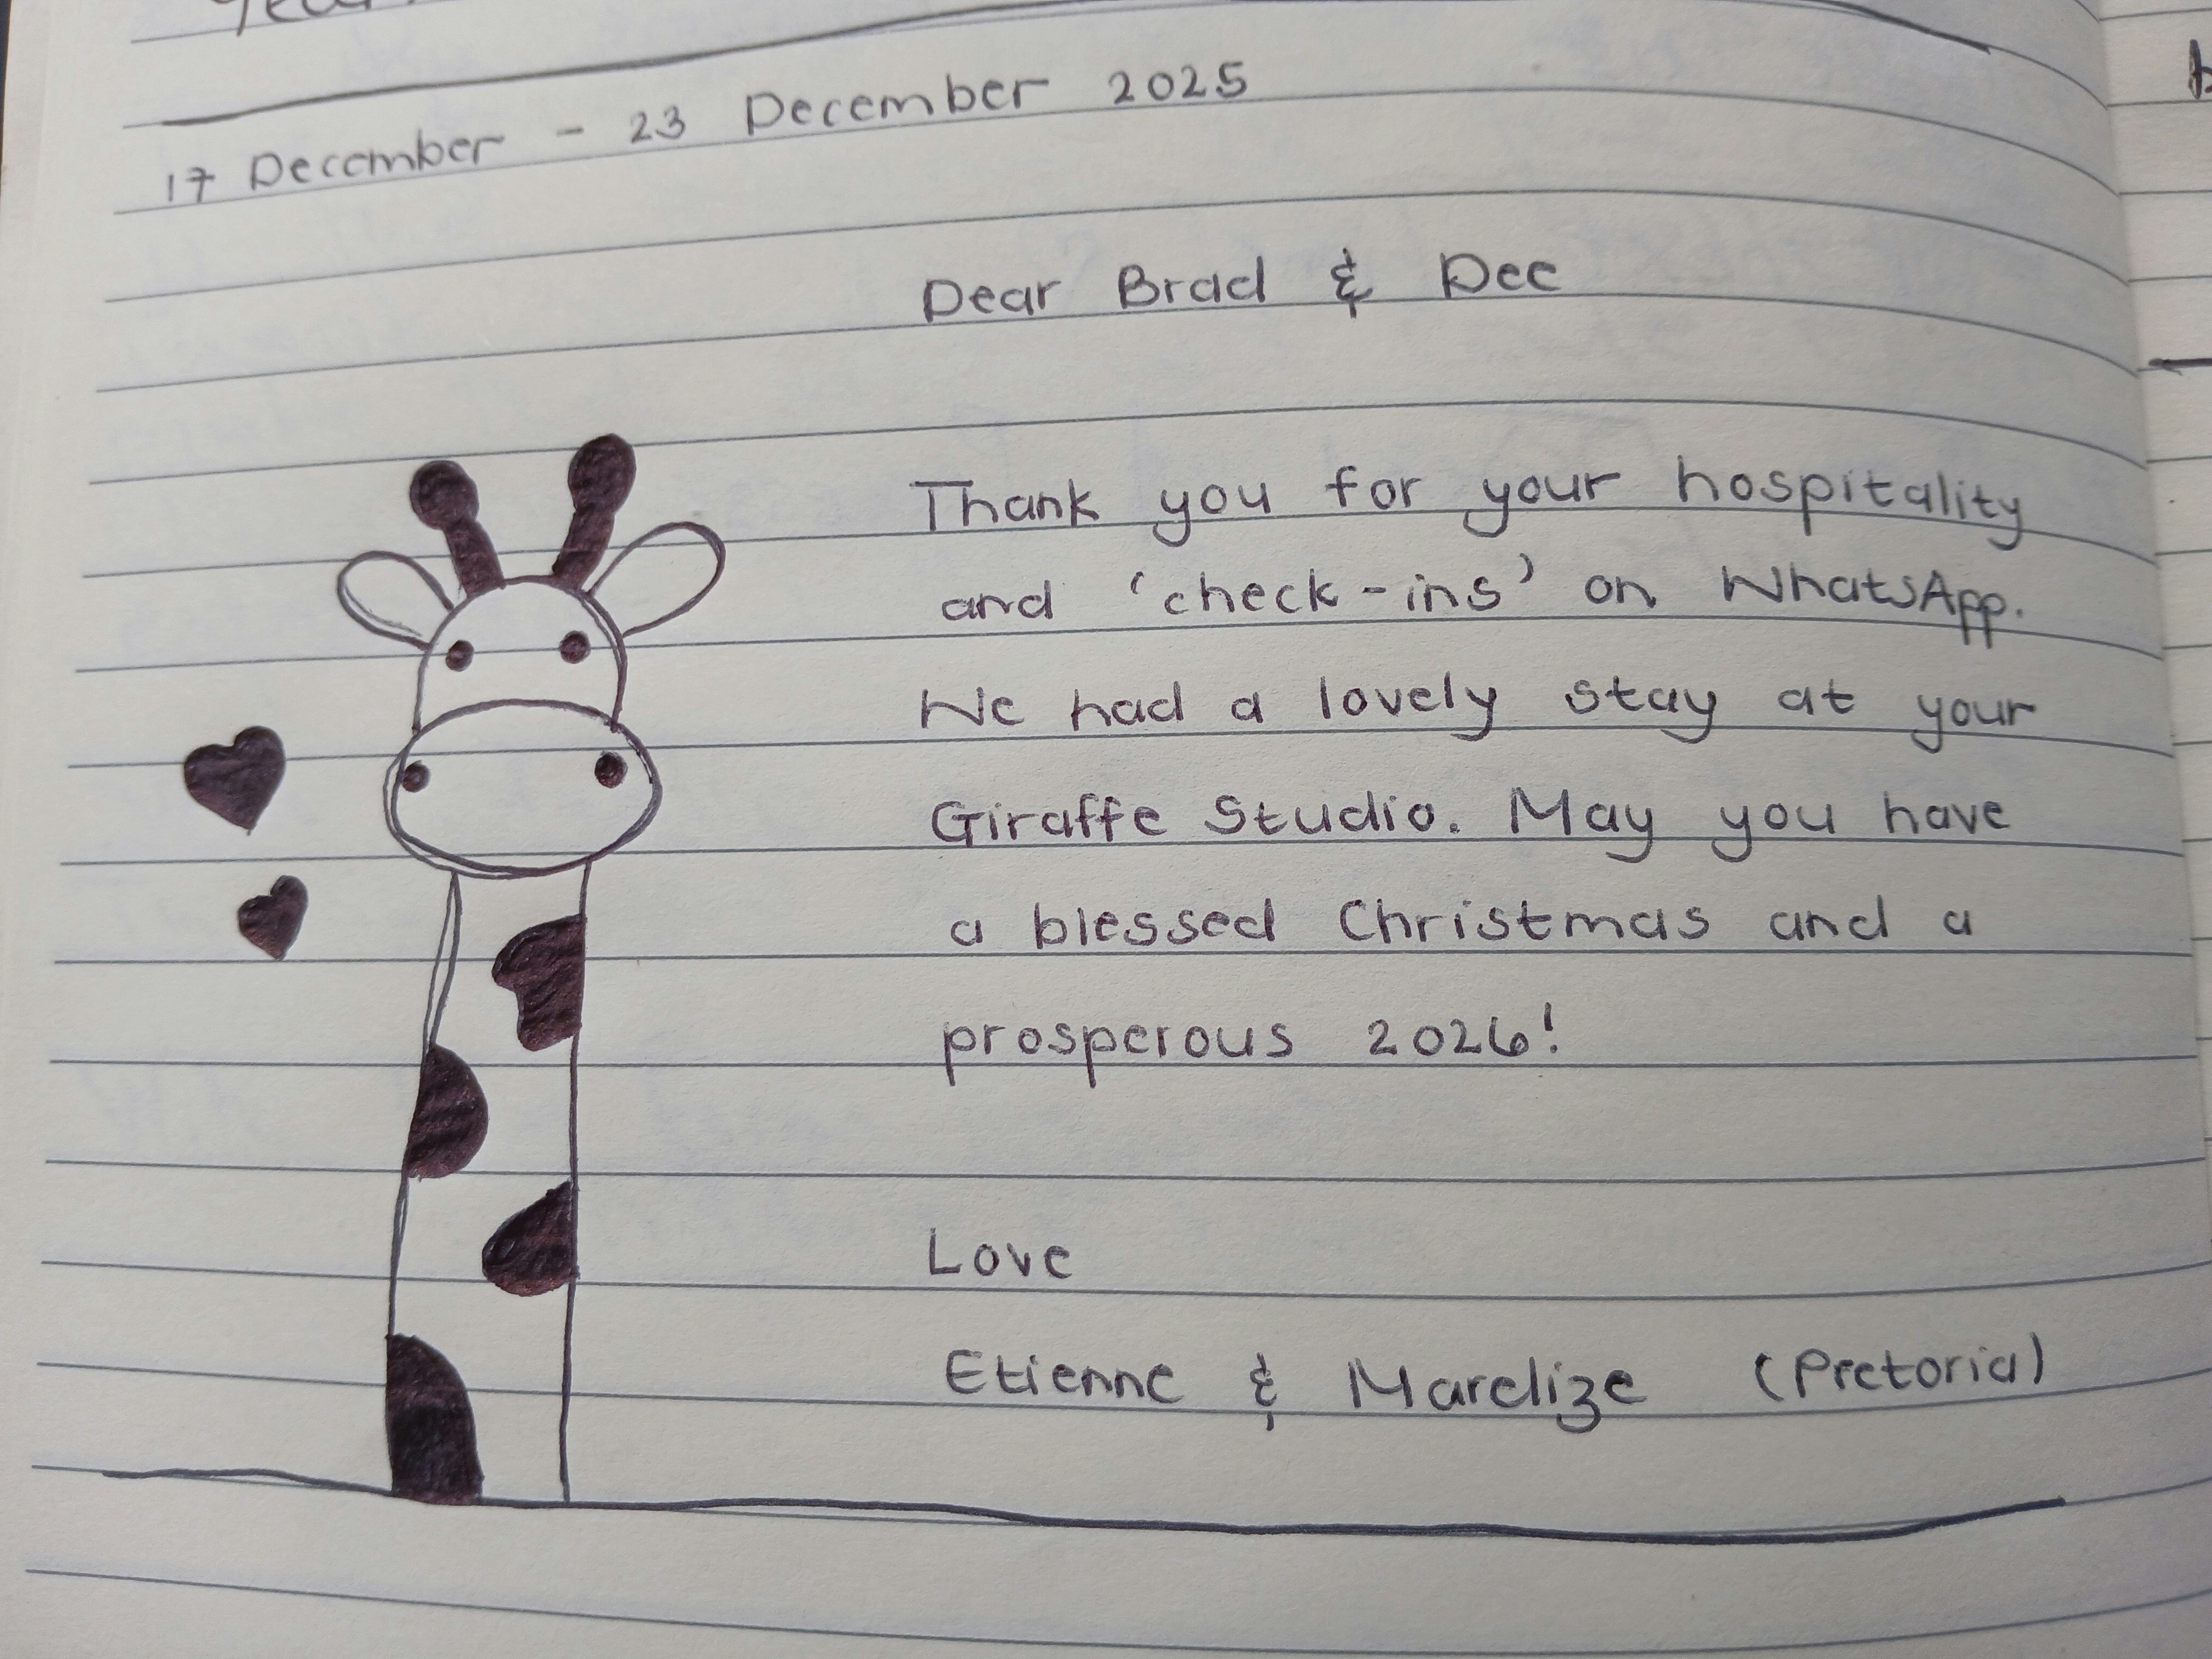 17 December - 23 December 2025
Dear Brad & Dee
Thank you for your hospitality
and 'check-ins' on WhatsApp.
We had a lovely stay at your
Giraffe Studio. May you have
a blessed Christmas and a
prosperous 2026!
Love
Etienne & Marelize (Pretoria)